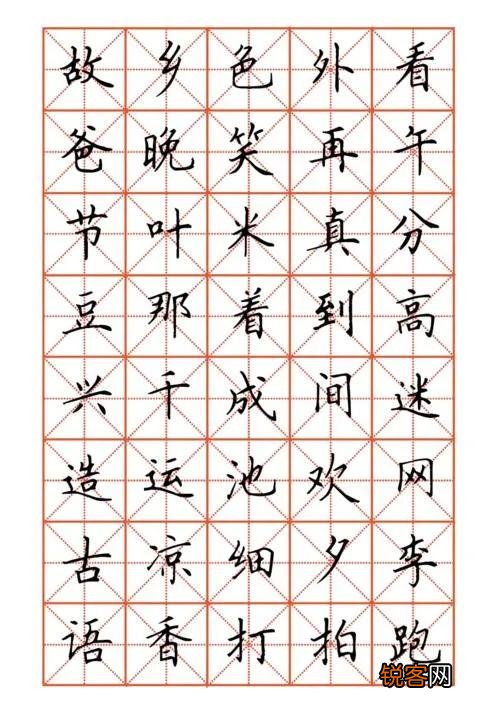 故乡色外看
爸晚笑再午
节叶米真分
豆那着到高
兴千成间迷
造运池欢网
古凉细夕李
语香打拍跑
锐客网